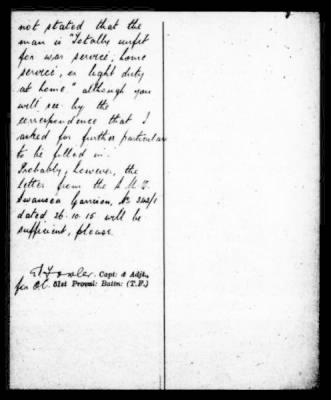 not stated that the
man is "Totally unfit
for war service, home
service, or light duty
at home" although you
will see by the
correspondence that I
asked for further particulars
to be filled in.
Probably, however, the
letter from the S.M.O.
Swansea Garrison, No
dated 26.10.15 will be
sufficient, please.
Capt: & Adjt.
for O.C. 51st Provnl: Battn: (T.F.)